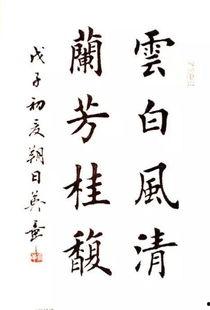 雲白風清
蘭芳桂馥
戊子初夏朔日英壺